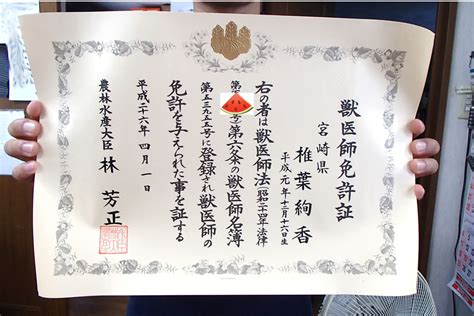 獣医師免許証
宮崎県
椎葉絢香
平成元年十二月十六日生
右の者は獣医師法(昭和二十四年法律
第 号)第六条の獣医師名簿
第五三九五五号に登録され獣医師の
免許を与えられた事を証する
平成二十六年四月一日
農林水産大臣 林芳正